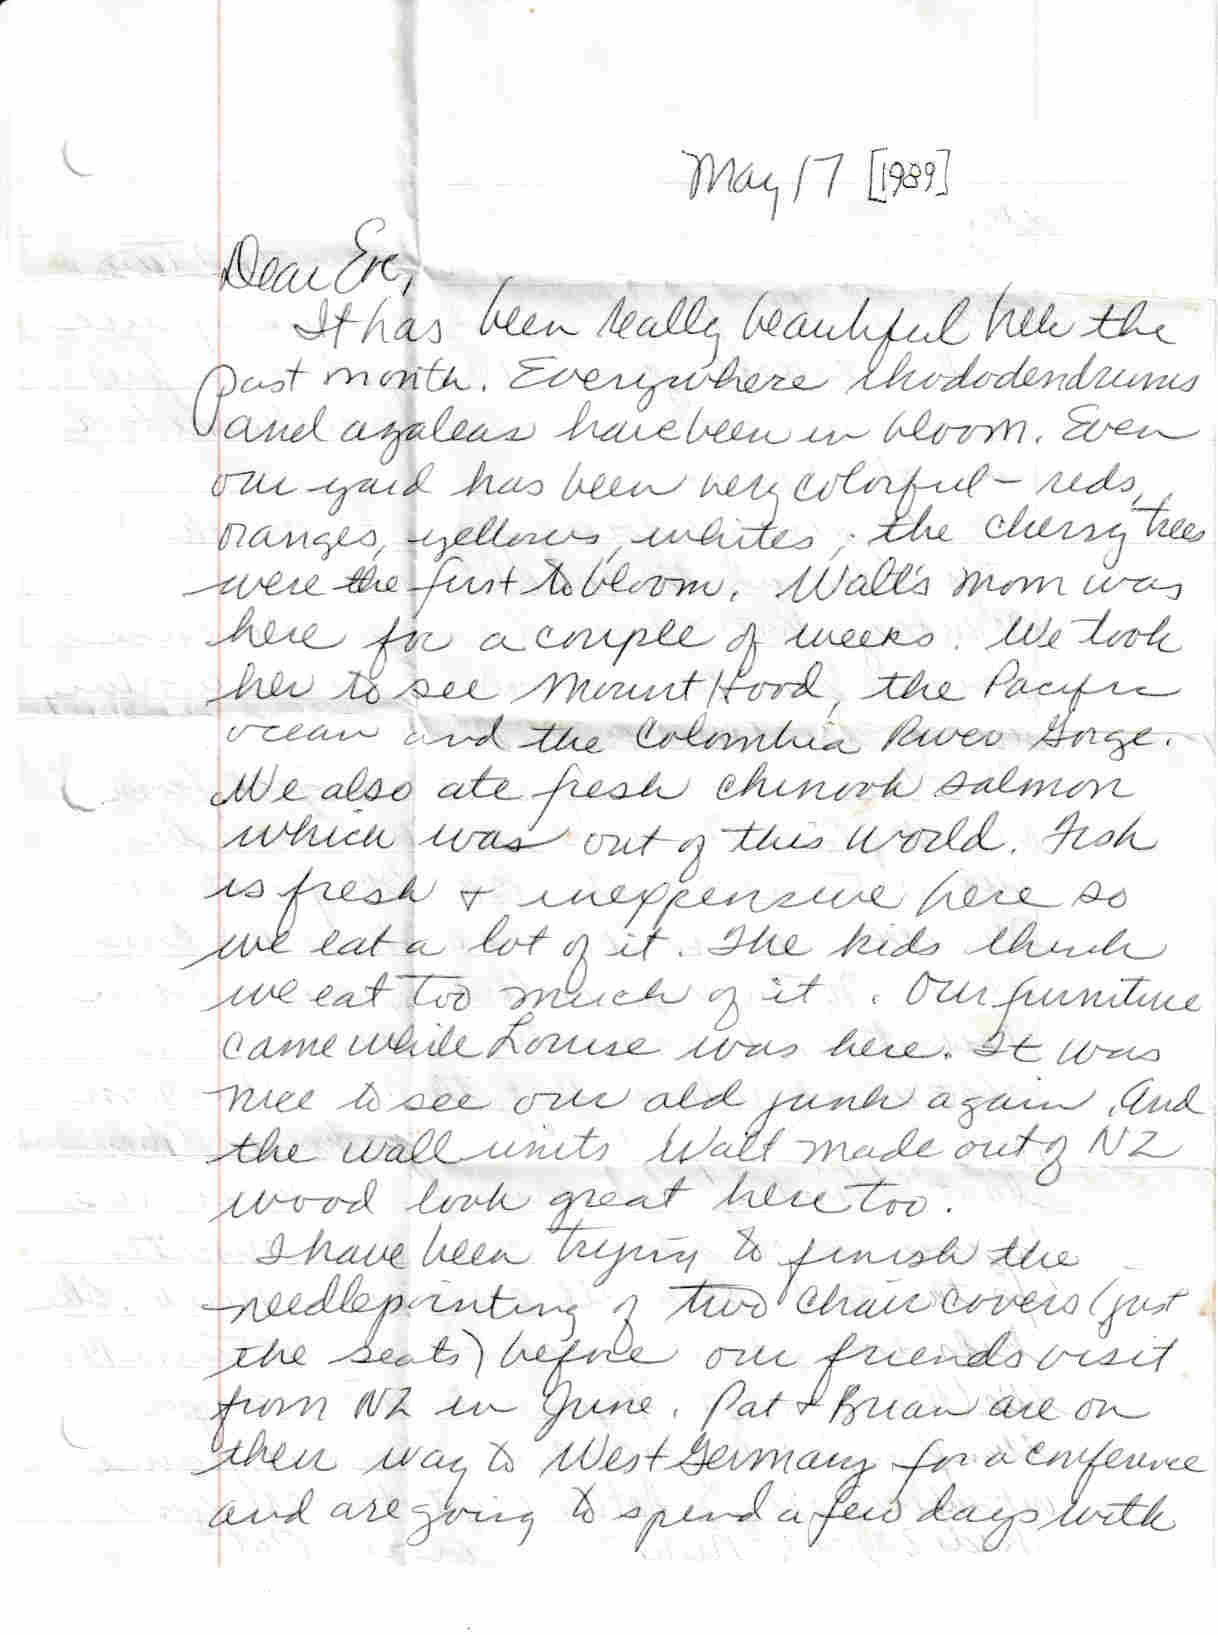 May 17 [1989]
Dear Eve,
It has been really beautiful here the
past month. Everywhere rhododendrums
and azaleas have been in bloom. Even
our yard has been very colorful - reds,
oranges, yellows, whites; the cherry trees
were the first to bloom. Walt's mom was
here for a couple of weeks. We took
her to see Mount Hood, the Pacific
ocean and the Colombia River Gorge.
We also ate fresh chinook salmon
which was out of this world. Fish
is fresh + inexpensive here so
we eat a lot of it. The kids think
we eat too much of it. Our furniture
came while Louise was here. It was
nice to see our old junk again. And
the wall units Walt made out of NZ
wood look great here too.
I have been trying to finish the
needlepointing of two chair covers (just
the seats) before our friends visit
from NZ in June. Pat + Brian are on
their way to West Germany for a conference
and are going to spend a few days with